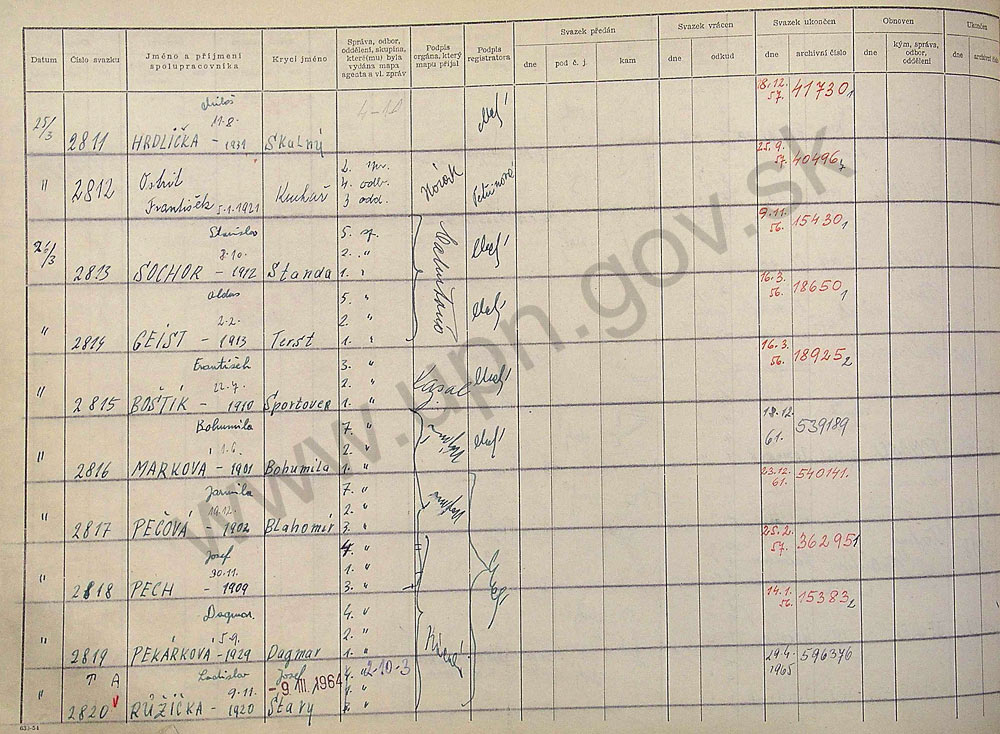 Svazek předán Svazek vrácen Svazek ukončen Obnoven Ukončen
Datum Číslo svazku Jméno a příjmení spolupracovníka Krycí jméno Správa, odbor, oddělení, skupina, které(mu) byla vydána mapa agenta a vl. zpráv Podpis orgána, který mapu přijal Podpis registratora dne pod č. j. kam dne odkud dne archivní číslo dne kým, správa, odbor, oddělení dne
Miloš 4-10 18.12.
25/3 2811 HRDLIČKA - 11.8. 1931 Skalný 57. 41730,
" 2812 Ostřil 2. spr. 25.9.
František 5.1.1921 Kuchař 4. odb. 3 odd. Novák 57. 40496
Stanislav 5. sp. 9.11.
26/3 2813 SOCHOR - 8.10. 1912 Standa 2. " 1. " 56. 15430,
5. " 16.3.
" 2814 GEIST - 2.2. 1913 Terst 2. " 1. " 56. 18650,
František 3. " 16.3.
" 2815 BOŠTÍK - 22.7. 1910 Sportovec 2. " 1. " 56. 18925
Bohumila 7. " 18.12.
" 2816 MARKOVÁ - 1.6. 1901 Bohumila 2. " 1. " 61. 539189
Jarmila 7. " 23.12.
" 2817 PEČOVÁ - 19.12. 1902 Blahomír 2. " 3. " 61. 540141.
Josef 4. " 25.2.
" 2818 PECH - 30.11. 1909 1. " 3. " 57. 362951
Dagmar. 4. " 14.1.
" 2819 PEKÁRKOVÁ - 5.9. 1929 Dagmar 2. " 1. " 56. 15383
A Ladislav Josef 4. " 2-10-3 29.4. 1965 596376
" 2820 v RŮŽIČKA - 9.11. 1920 - 9. III. 1964 Starý 1. "
www.upn.gov.sk